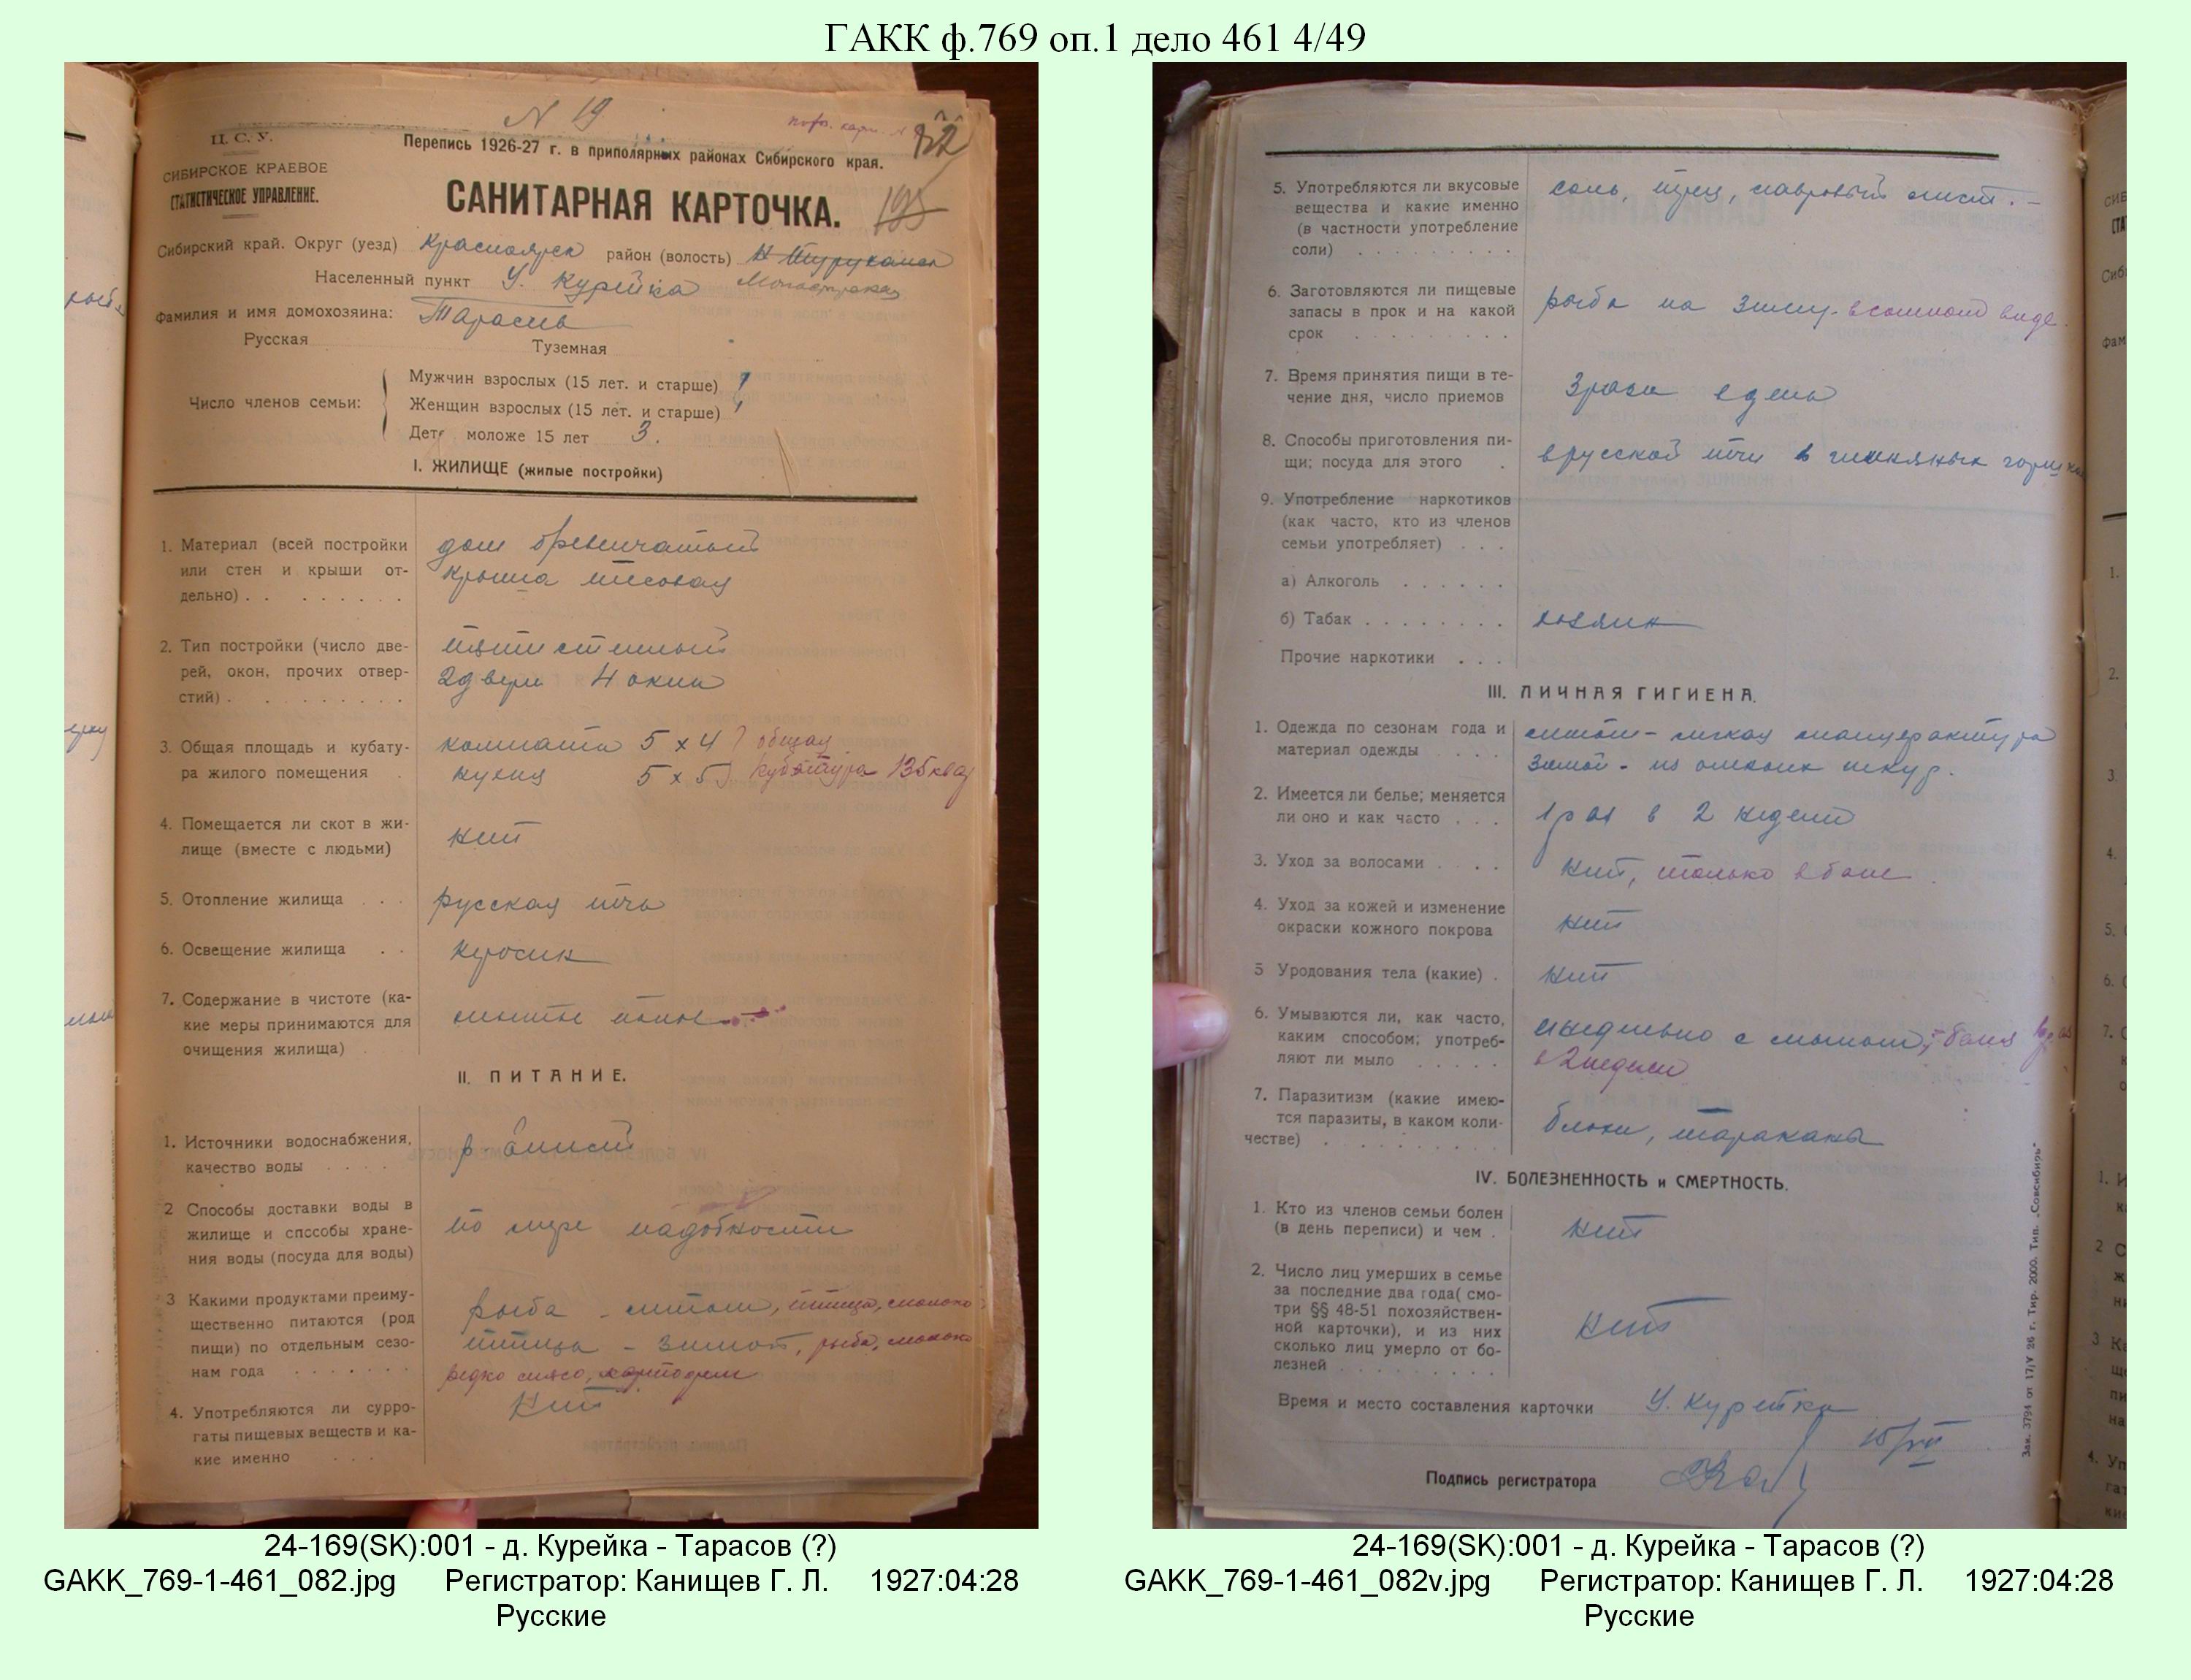 ГАКК ф.769 оп.1 дело 461 4/49
N 19
82
Ц. С. У.
СИБИРСКОЕ КРАЕВОЕ
СТАТИСТИЧЕСКОЕ УПРАВЛЕНИЕ.
Перепись 1926-27 г. в приполярных районах Сибирского края.
САНИТАРНАЯ КАРТОЧКА.
195
Сибирский край. Округ (уезд) Красноярск район (волость) Н Туруханск
Населенный пункт У. Курейка
Фамилия и имя домохозяина: Тарасов
Русская Туземная
Число членов семьи:
Мужчин взрослых (15 лет. и старше) 1
Женщин взрослых (15 лет. и старше) 1
Дете моложе 15 лет 3.
I. ЖИЛИЩЕ (жилые постройки)
1. Материал (всей постройки дом бревенчатый
или стен и крыши от- крыша тесовая
дельно) . . . . . . . .
2. Тип постройки (число две- пятистенный
рей, окон, прочих отвер- 2 двери 4 окна
стий) . . . . . . . . .
3. Общая площадь и кубату- комната 5 x 4 общая
ра жилого помещения . кухня 5 x 5 кубатура 135 ква
4. Помещается ли скот в жи- нет
лище (вместе с людьми)
5. Отопление жилища . . . русская печь
6. Освещение жилища . . керосин
7. Содержание в чистоте (ка-
кие меры принимаются для мытье полов
очищения жилища) .
II. ПИТАНИЕ.
1. Источники водоснабжения, р. Енисей
качество воды . . . .
2 Способы доставки воды в
жилище и способы хране- по мере надобности
ния воды (посуда для воды)
3 Какими продуктами преиму- рыба - летом, птица, молоко
щественно питаются (род
пищи) по отдельным сезо- птица - зимой, рыба, молоко
нам года . . . . . . . редко мясо, картофель
4. Употребляются ли сурро- нет
гаты пищевых веществ и ка-
кие именно . . .
5. Употребляются ли вкусовые соль, перец, лавровый лист. -
вещества и какие именно
(в частности употребление
соли) . . . . . . . .
6. Заготовляются ли пищевые рыба на зиму. в соленом виде.
запасы в прок и на какой
срок . . . . . . . . .
7. Время принятия пищи в те- 3 раза в день
чение дня, число приемов
8. Способы приготовления пи- в русской печи в глиняных горшках
щи; посуда для этого .
9. Употребление наркотиков
(как часто, кто из членов
семьи употребляет) . . .
а) Алкоголь . . . . . .
б) Табак . . . . . . . . хозяин
Прочие наркотики . . .
III. ЛИЧНАЯ ГИГИЕНА.
1. Одежда по сезонам года и летом - легкая мануфактура
материал одежды . . . зимой - из оленьих шкур.
2. Имеется ли белье; меняется 1 раз в 2 недели
ли оно и как часто . . .
3. Уход за волосами . . . . нет, только в бане
4. Уход за кожей и изменение нет
окраски кожного покрова
5 Уродования тела (какие) . нет
6. Умываются ли, как часто, ежедневно с мылом, баня 1 раз
каким способом; употреб- в 2 недели
ляют ли мыло . . . . .
7. Паразитизм (какие имею-
тся паразиты, в каком коли- блохи, тараканы
честве) . . . . . . . .
IV. БОЛЕЗНЕННОСТЬ и СМЕРТНОСТЬ.
1. Кто из членов семьи болен нет
(в день переписи) и чем .
2. Число лиц умерших в семье
за последние два года( смо-
три §§ 48-51 похозяйствен- нет
ной карточки), и из них
сколько лиц умерло от бо-
лезней . . . . . . . .
Время и место составления карточки У. Курейка
Подпись регистратора
Зак. 3794 от 17/V 26 г. Тир. 2000. Тип. „Совсибирь"
24-169(SK):001 - д. Курейка - Тарасов (?)
GAKK_769-1-461_082.jpg Регистратор: Канищев Г. Л. 1927:04:28
Русские
24-169(SK):001 - д. Курейка - Тарасов (?)
GAKK_769-1-461_082v.jpg Регистратор: Канищев Г. Л. 1927:04:28
Русские